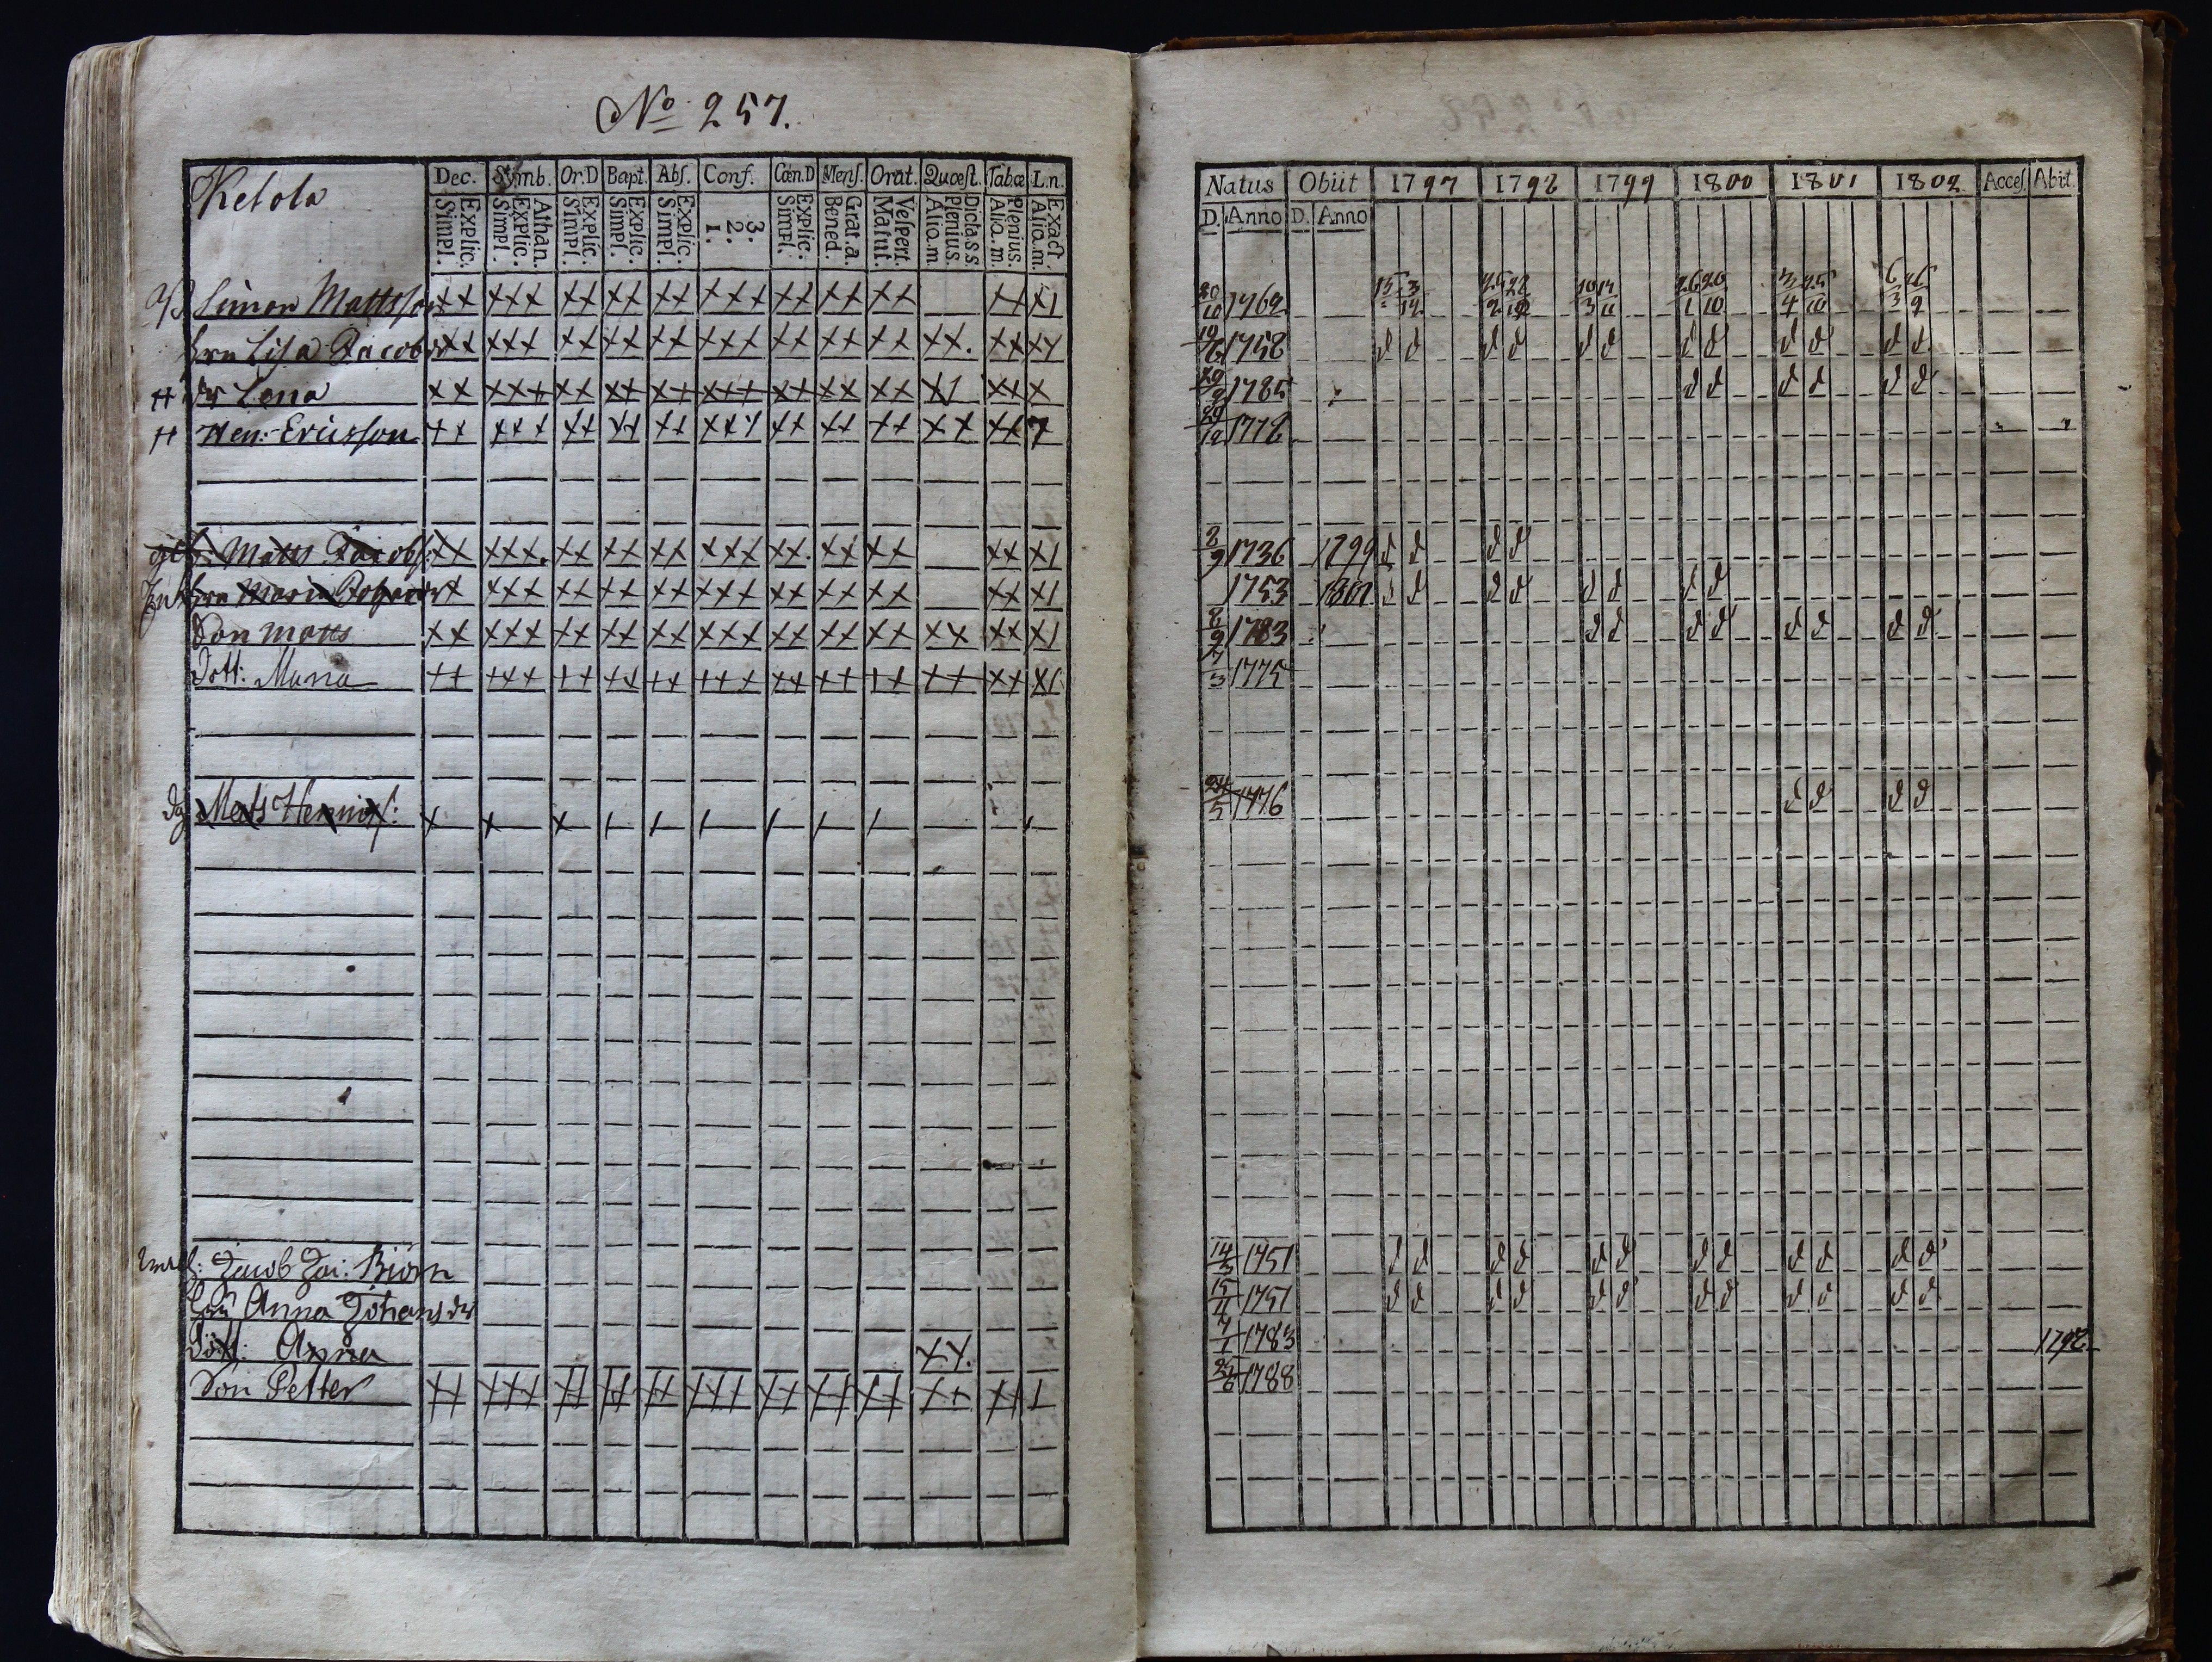 No 257.
Ketola
Dec. Symb. Or.D Bapt. Abs. Conf. Cœn.D Mens. Orat. Quœst. Tabœ L.n.
Explic. Simpl. Athan. Explic. Simpl. Explic. Simpl. Explic. Simpl. Explic. Simpl. 3. 2. 1. Explic. Simpl. Grat.a. Bened. Vespert. Matut. Dicta S.S. Plenius. Alio.m. Plenius. Alia.m. Exact. Alio.m.
Simon Mattsson xx xxx xx xx xx xxx xx xx xx xx x1
hru Lisa Jacobsdr xx xxx xx xx xx xxx xx xx xx xx. xx xx
dr Lena xx xxx xx xx xx xxx xx xx xx x1 xx x
Hen: Ericsson xx xxx xx xx xx xxx xx xx xx xx xx
Matts Jacobs: xx xxx. xx xx xx xxx xx. xx xx xx x1
hru Maria xx xxx xx xx xx xxx xx xx xx xx x1
Son Matts xx xxx xx xx xx xxx xx xx xx xx xx x1
dott: Maria xx xxx xx xx xx xxx xx xx xx xx xx x1
Mats Hennis: x x x
Jacob Joi: Biörn
hru Anna Johansdr
dott: Anna xx.
Son Petter xx xxx xx xx xx xxx xx xx xx xx xx 1
Natus Obiit 1797 1798 1799 1800 1801 1802 Acces. Abiit.
D. Anno D. Anno
20/10 1762 3/12 10/3 26/1 20/10 3/4 25/10 6/3 26/9
1758 d d d d d d d d d d d d
29/9 1785 d d d d d d
29/12 1778
8/9 1736 1799 d d d d
1753 1801 d d d d d d d d
8/9 1783 d d d d d d d d
7/3 1775
24/5 1776 d d d d
14/3 1751 d d d d d d d d d d d d
15/11 1751 d d d d d d d d d d d d
1783 1798
1788